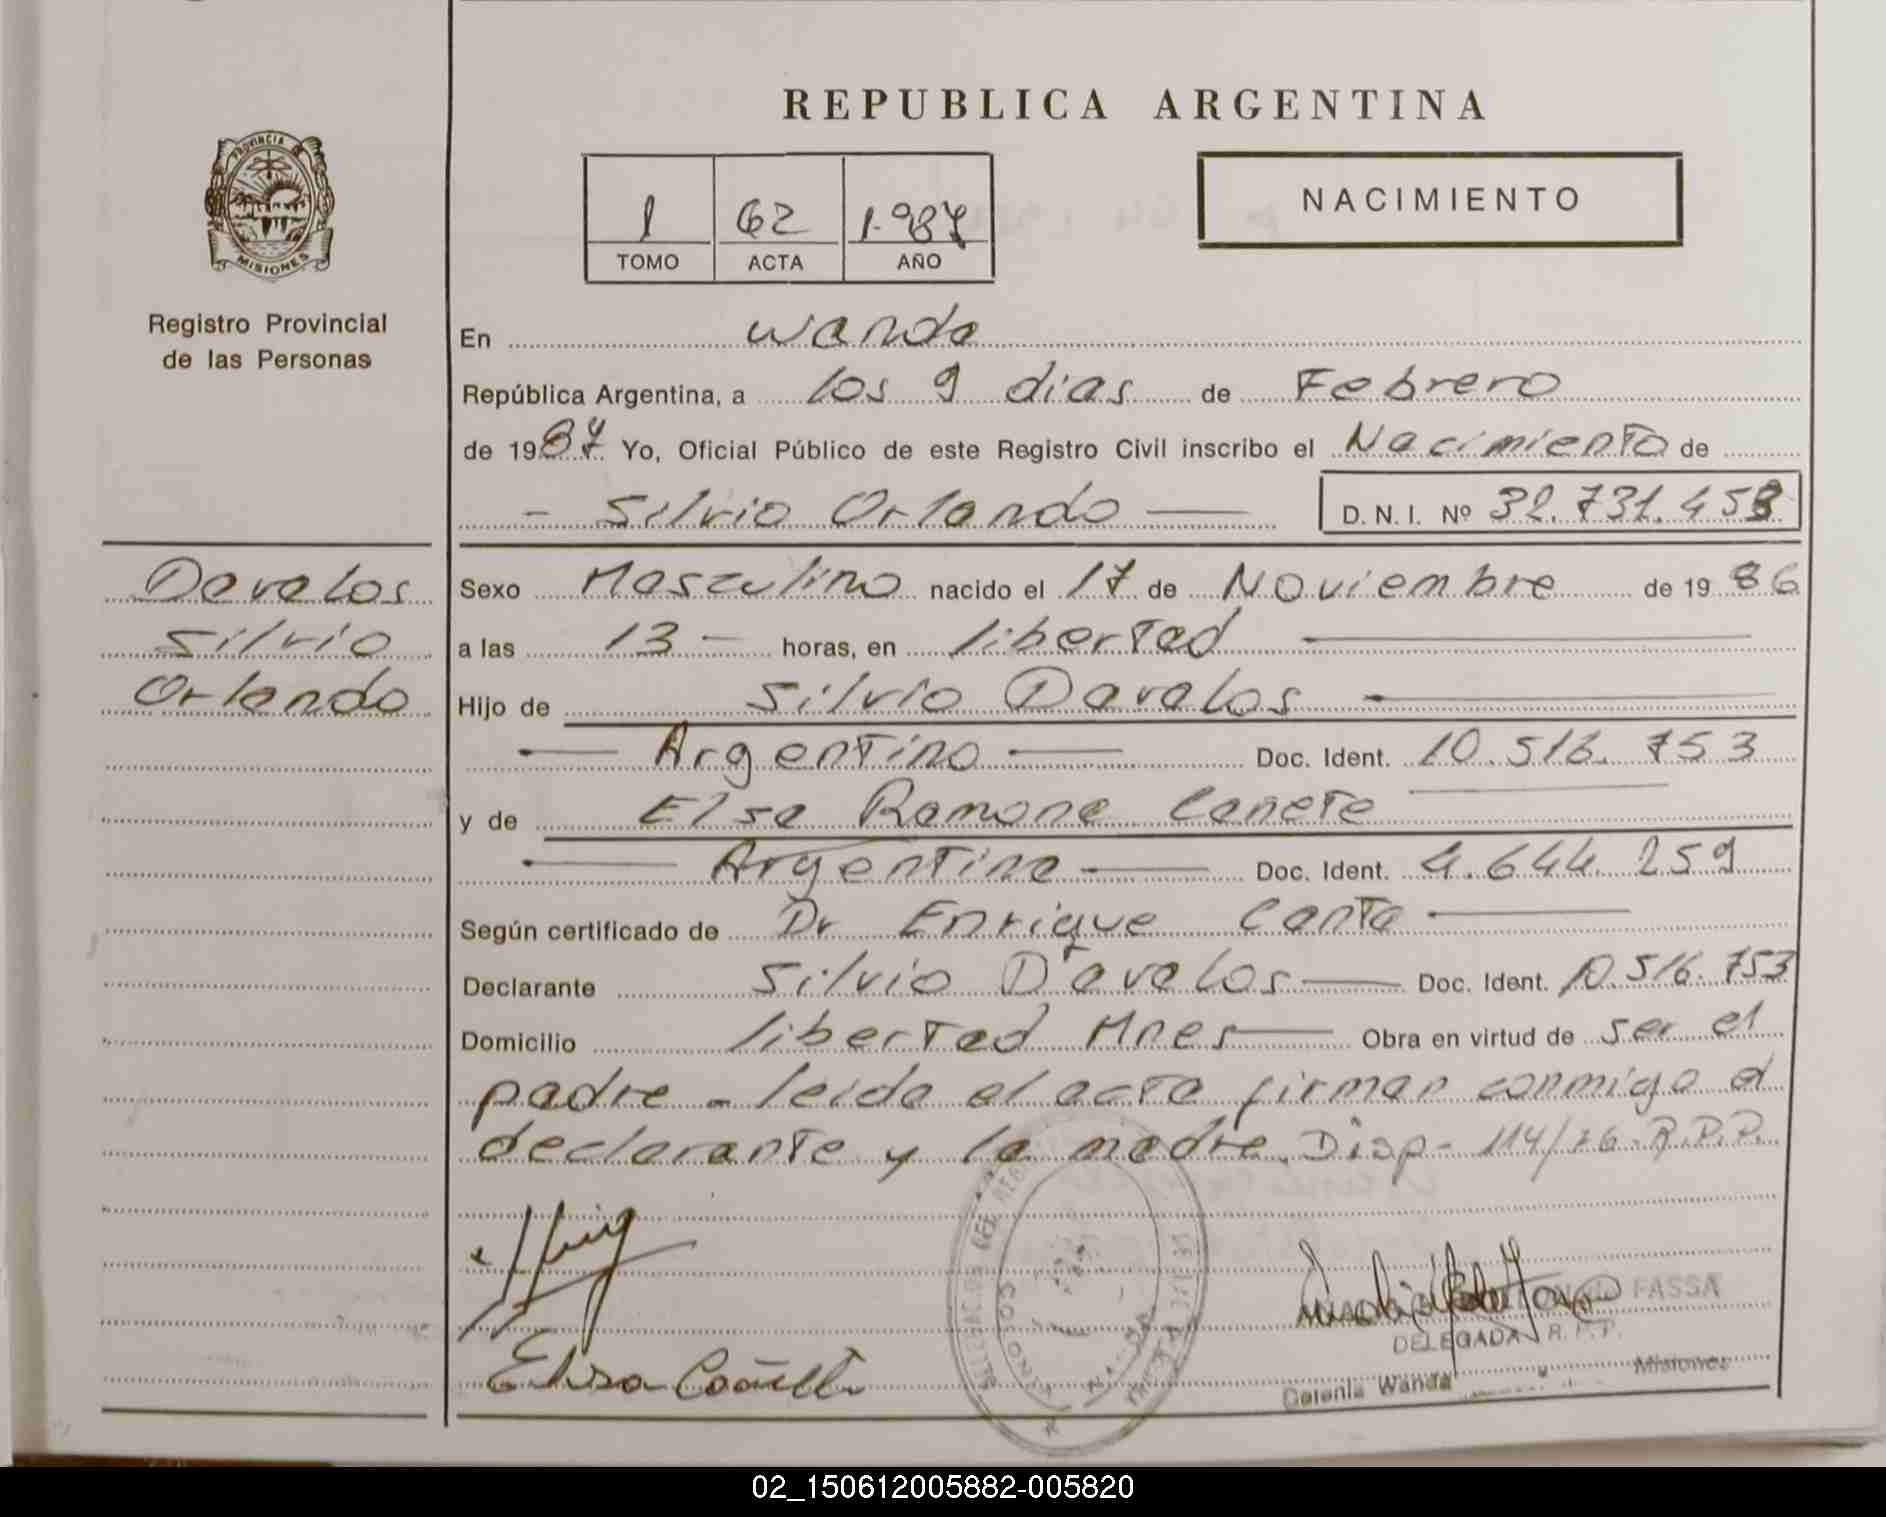 REPUBLICA ARGENTINA
PROVINCIA DE
MISIONES
Registro Provincial
de las Personas
1 62 1.987
TOMO ACTA AÑO
NACIMIENTO
En Wanda
República Argentina, a los 9 dias de Febrero
de 1987 Yo, Oficial Público de este Registro Civil inscribo el Nacimiento de
- Silvio Orlando — D. N. I. Nº 32.731.453
Davalos
Silvio
Orlando
Sexo Masculino nacido el 17 de Noviembre de 1986
a las 13 — horas, en libertad —
Hijo de Silvio Davalos —
— Argentino — Doc. Ident. 10.516.753
y de Elsa Ramona Canete —
— Argentina — Doc. Ident. 4.644.259
Según certificado de Dr Enrique Canta —
Declarante Silvio Davalos — Doc. Ident. 10.516.753
Domicilio libertad Mnes — Obra en virtud de ser el
padre - leida el acta firman conmigo el
declarante y la madre. Disp - 114/76. R.P.P.
Elisa Cañete
FASSA
DELEGADA R.P.P.
Colonia Wanda Misiones
02_150612005882-005820